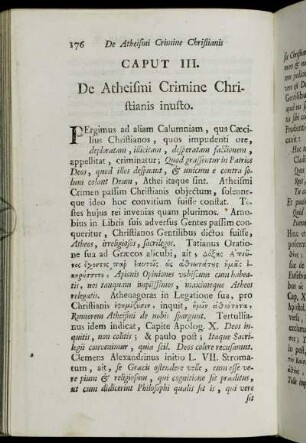 176 De Atheismi Crimine Christianis
CAPUT III.
De Atheismi Crimine Chri-
stianis inusto.
PErgimus ad aliam Calumniam, qua Cæci-
lius Christianos, quos impudenti ore,
deploratam, illicitam, desperatam factionem
appellitat, criminatur; Quod grassentur in Patrios
Deos, quod illos despuant, & unicum e contra so-
lum colant Deum, Athei itaque sint. Atheismi
Crimen passim Christianis objectum, solemne-
que ideo hoc convitium fuisse constat. Te-
stes hujus rei invenias quam plurimos. Arno-
bius in Libris suis adversus Gentes passim con-
queritur, Christianos Gentilibus dictos fuisse,
Atheos, irreligiosos, sacrilegos. Tatianus Oratio-
ne sua ad Græcos alicubi, ait
Apionis Opiniones vobiscum cum habea-
tis, nos tanquam impiissimos, maximeque Atheos
relegatis. Athenagoras in Legatione sua, pro
Christianis
Rumorem Atheismi de nobis spargunt. Tertullia-
nus idem indicat, Capite Apolog. X. Deos in-
quitis, non colitis; & paulo post; Itaque Sacri-
legii convenimur, quia scil. Deos colere recusarunt.
Clemens Alexandrinus initio L. VII. Stroma-
tum, ait, se Græcis ostendere velle, eum esse ve-
re pium & religiosum, qui cognitione sit præditus,
ut cum didicerint Philosophi qualis sit is, qui vere
sit